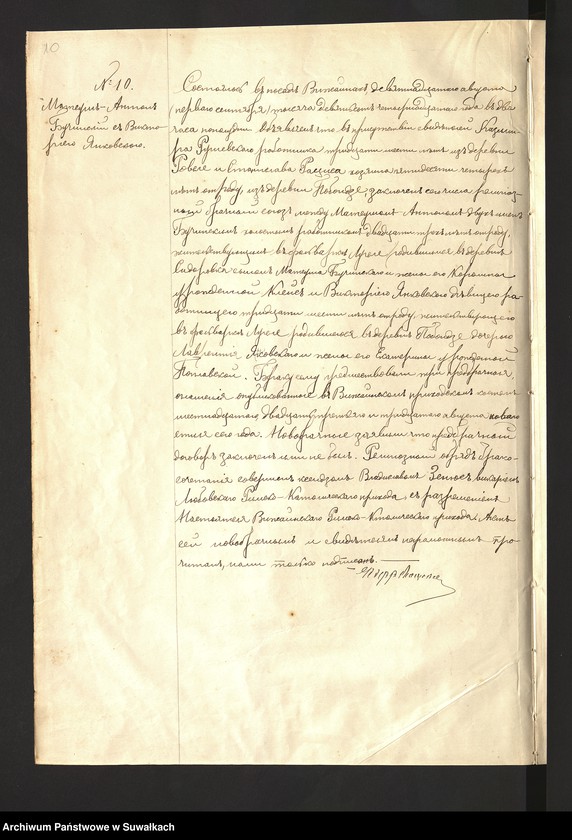 10
№ 10.
Матеушъ-Антонъ
Бучинскій съ Викто-
ріею Янковскою.
Состоялось въ посадѣ Вижайнахъ девятнадцатаго августа
(перваго сентября) тысяча девятьсотъ четырнадцатаго года въ два
часа пополудни. Объявляемъ что въ присутствіи свидѣтелей Казими-
ра работника тридцати шести лѣтъ изъ деревни
и Станислава хозяина пятидесяти четырехъ
лѣтъ отъ роду, изъ деревни Побондзе, заключенъ сего числа религіоз-
ный брачный союзъ между Матеушомъ Антономъ двухъ именъ
Бучинскимъ холостымъ работникомъ двадцати трехъ лѣтъ отъ роду,
жительствующимъ въ фольваркѣ родившимся въ деревнѣ
сыномъ Матеуша Бучинскаго и жены его Каролины
урожденной и Викторіею Янковскою дѣвицею ра-
ботницею тридцати шести лѣтъ отъ роду, жительствующею
въ фольваркѣ родившеюся въ деревнѣ Побондзе дочерью
Лаврентія Янковскаго и жены его Екатерины урожденной
Браку сему предшествовали три предбрачныя
оглашенія опубликованныя въ Вижайнскомъ приходскомъ костелѣ
шестнадцатаго двадцать третьяго и тридцатаго августа новаго
стиля сего года. Новобрачные заявили что предбрачный
договоръ заключенъ ими не былъ. Религіозный обрядъ брако-
сочетанія совершонъ ксендзомъ Владиславомъ викаріемъ
Любовскаго Римско-Католическаго прихода, съ разрѣшенія
Настоятеля Вижайнскаго Римско-Католическаго прихода. Актъ
сей новобрачнымъ и свидѣтелямъ неграмотнымъ про-
читанъ, нами только подписанъ.
Archiwum Państwowe w Suwałkach